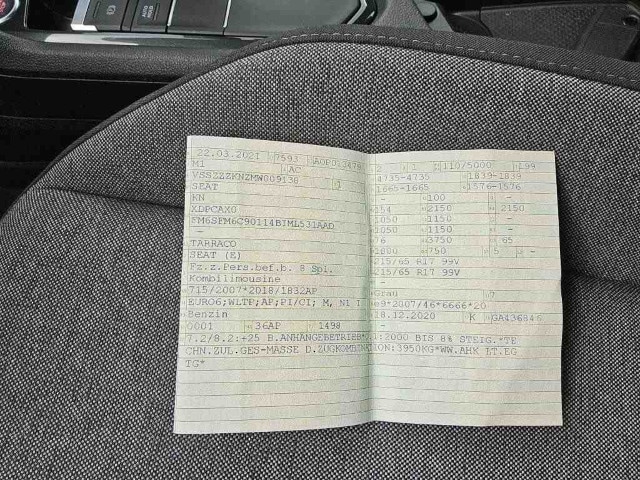 22.03.2021 7593
110/5000 L99
M1 AC
4735-4735 1839-1839
1
1665-1665 1576-1576
SEAT
- 100 -
KN
154 2150 2150
XDPCAX0
1050 1150 -
1050 1150 -
-
76 3750 65
TARRACO
750 5 -
SEAT (E)
215/65 R17 99V
Fz.z.Pers.bef.b. 8 Spl.
215/65 R17 99V
Kombilimousine
-
715/2007*2018/1832AP
Grau 7
EURO6;WLTP;AP;PI/CI; M, N1 I
e9*2007/46*6666*20
Benzin
18.12.2020 K GA436846
0001 36AP 1498
-
7.2/8.2:+25 B.ANHÄNGEBETRIEB*O.1:2000 BIS 8% STEIG.*TE
CHN.ZUL.GES-MASSE D.ZUGKOMBINATION:3950KG*WW.AHK LT.EG
TG*